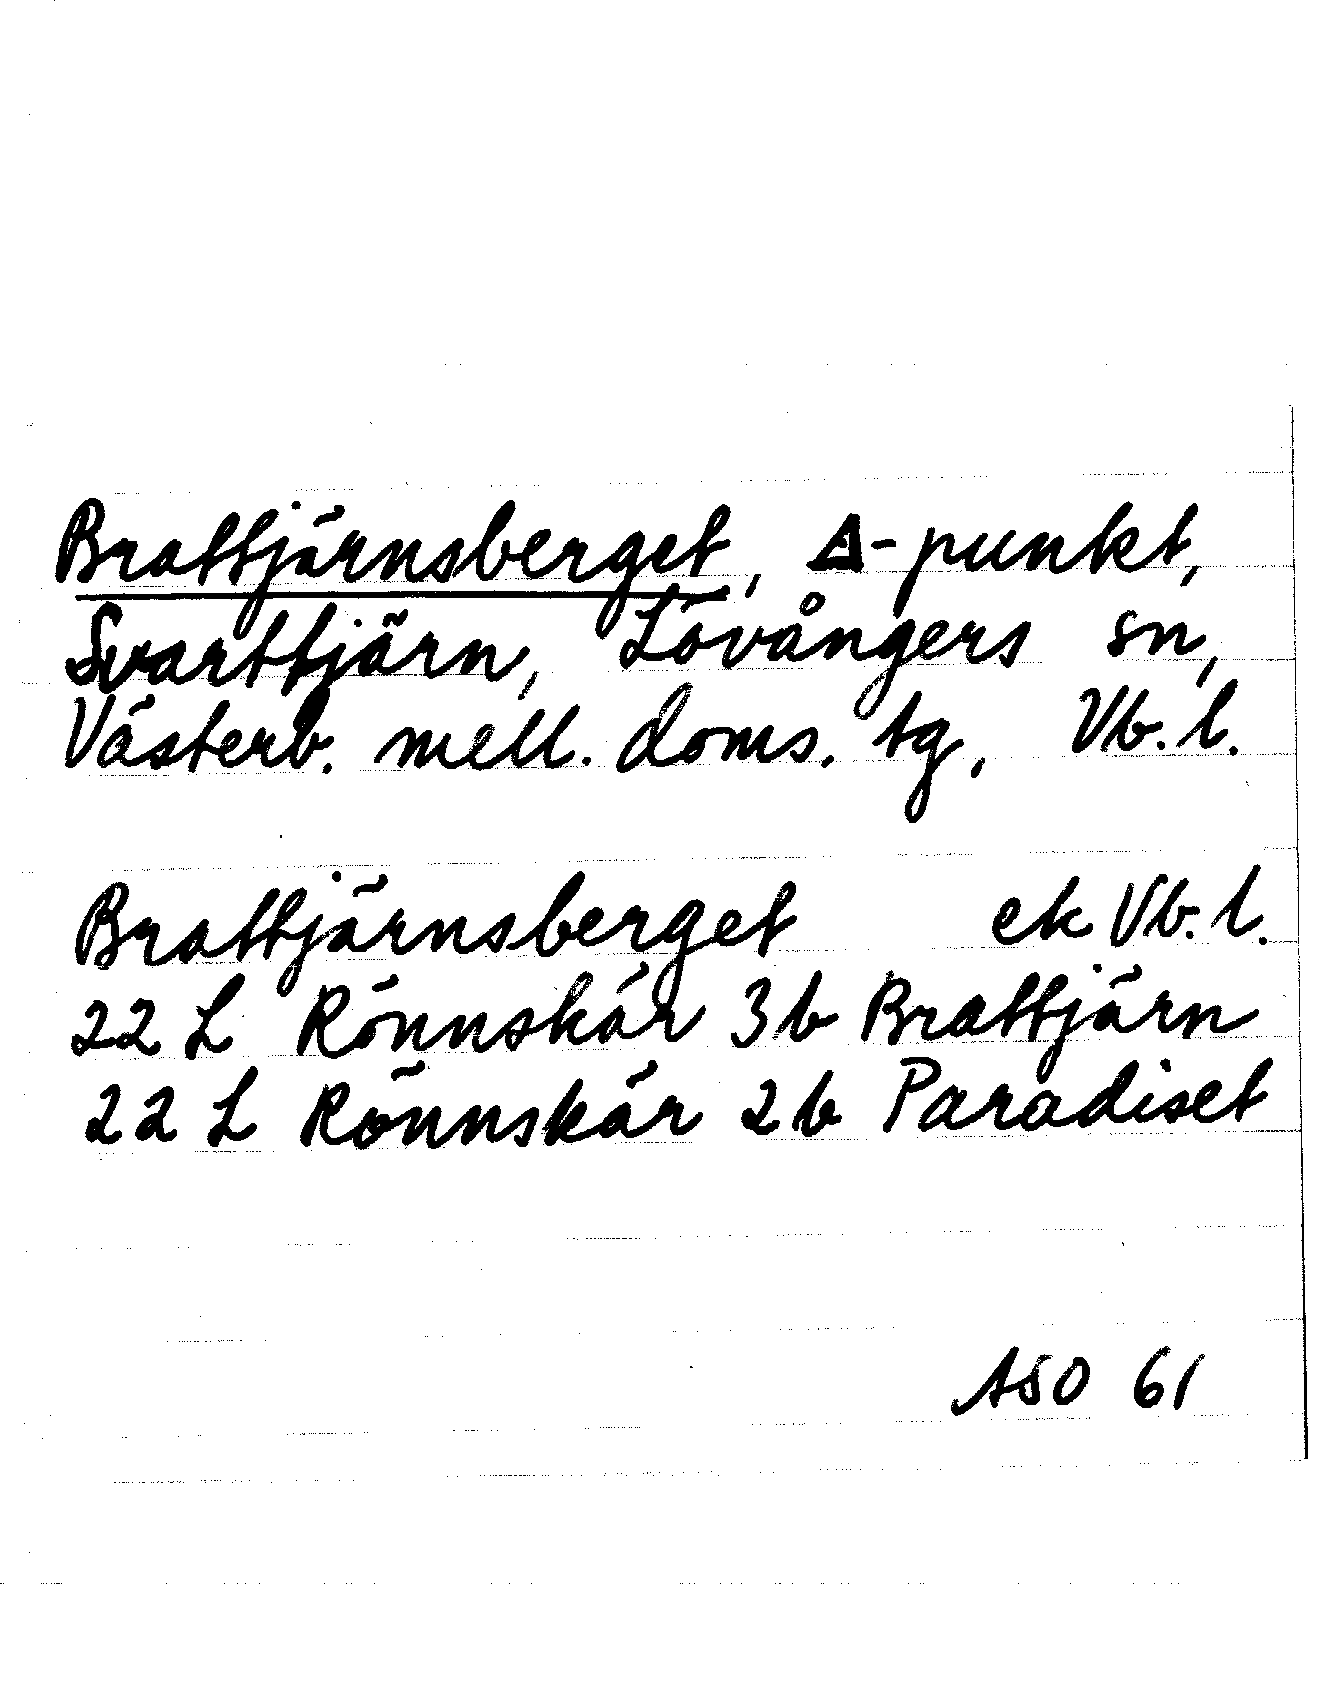 Brattjärnsberget, ∆-punkt,
Svarttjärn, Lövångers sn,
Västerb. mell. doms. tg, Vb. l.
Brattjärnsberget ek Vb. l.
22 L Rönnskär 3b Brattjärn
22 L Rönnskär 2b Paradiset
ASO 61